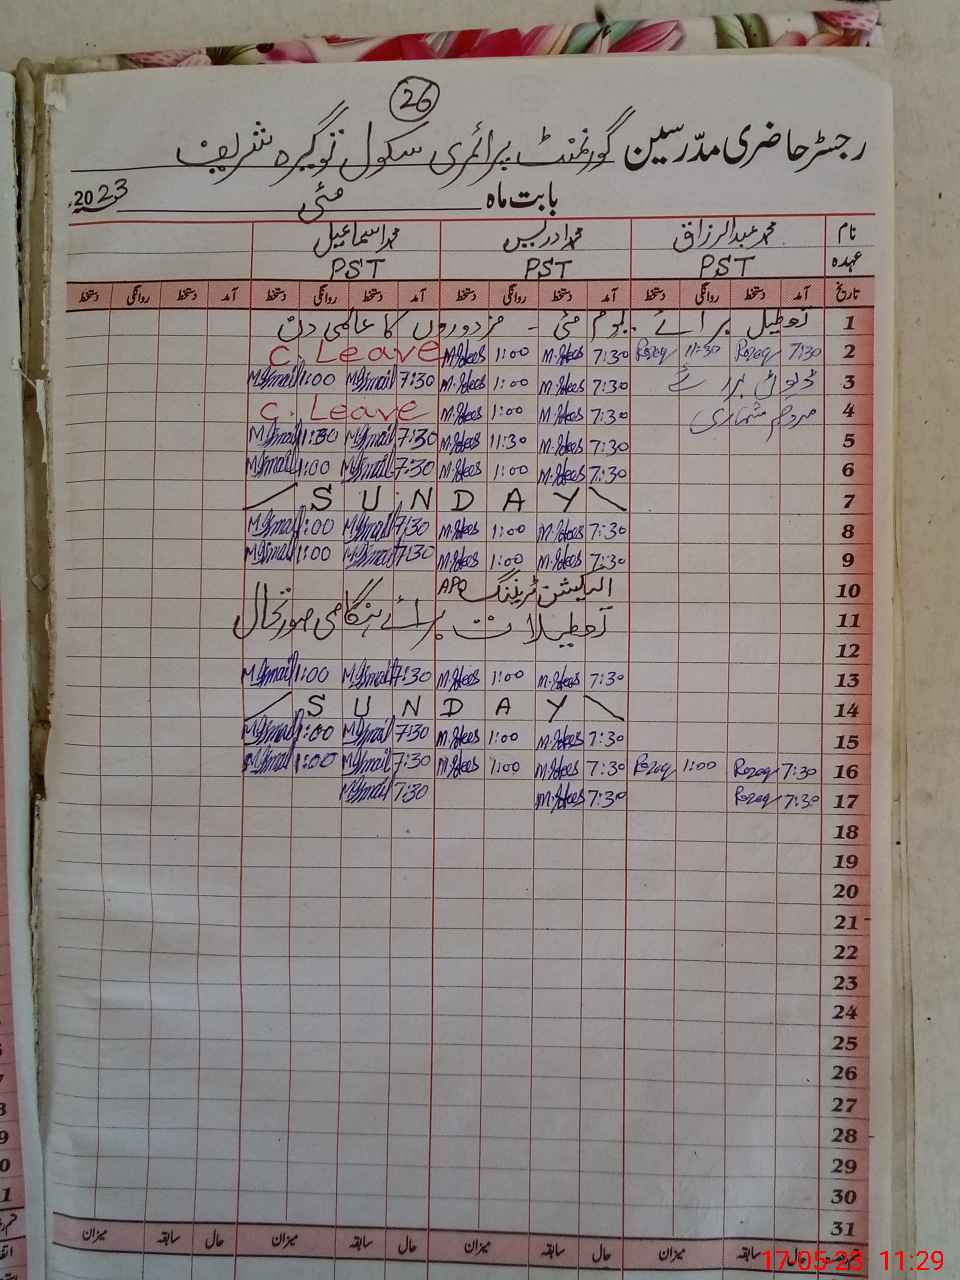 26
رجسٹر حاضری مدرسین گورنمنٹ پرائمری سکول نوگیرہ شریف
بابت ماہ مئی 2023
نام محمد عبدالرزاق محمد ادریس محمد اسماعیل
عہدہ PST PST PST
تاریخ آمد دستخط روانگی دستخط آمد دستخط روانگی دستخط آمد دستخط روانگی دستخط آمد دستخط روانگی دستخط
1 تعطیل برائے یوم مئی - مزدوروں کا عالمی دن
2 7:30 Rozaq 11:30 Rozaq 7:30 M.Idees 1:00 M.Idees C. Leave
3 ڈیوٹی برائے 7:30 M.Idees 1:00 M.Idees 7:30 M Ismail 1:00 M Ismail
4 مردم شماری 7:30 M.Idees 1:00 M.Idees C. Leave
5 7:30 M.Idees 11:30 M.Idees 7:30 M Ismail 11:30 M Ismail
6 7:30 M.Idees 1:00 M.Idees 7:30 M Ismail 1:00 M Ismail
7 SUNDAY
8 7:30 M.Idees 1:00 M.Idees 7:30 M Ismail 1:00 M Ismail
9 7:30 M.Idees 1:00 M.Idees 7:30 M Ismail 1:00 M Ismail
10 الیکشن ٹریننگ APO
11 تعطیلات برائے ہنگامی صورتحال
12
13 7:30 M.Idees 1:00 M.Idees 7:30 M Ismail 1:00 M Ismail
14 SUNDAY
15 7:30 M.Idees 1:00 M.Idees 7:30 M Ismail 1:00 M Ismail
16 7:30 Rozaq 1:00 Rozaq 7:30 M.Idees 1:00 M.Idees 7:30 M Ismail 1:00 M Ismail
17 7:30 Rozaq 7:30 M.Idees 7:30 M Ismail
18
19
20
21
22
23
24
25
26
27
28
29
30
31
حال سابقہ میزان حال سابقہ میزان حال سابقہ میزان حال سابقہ میزان
17-05-23 11:29